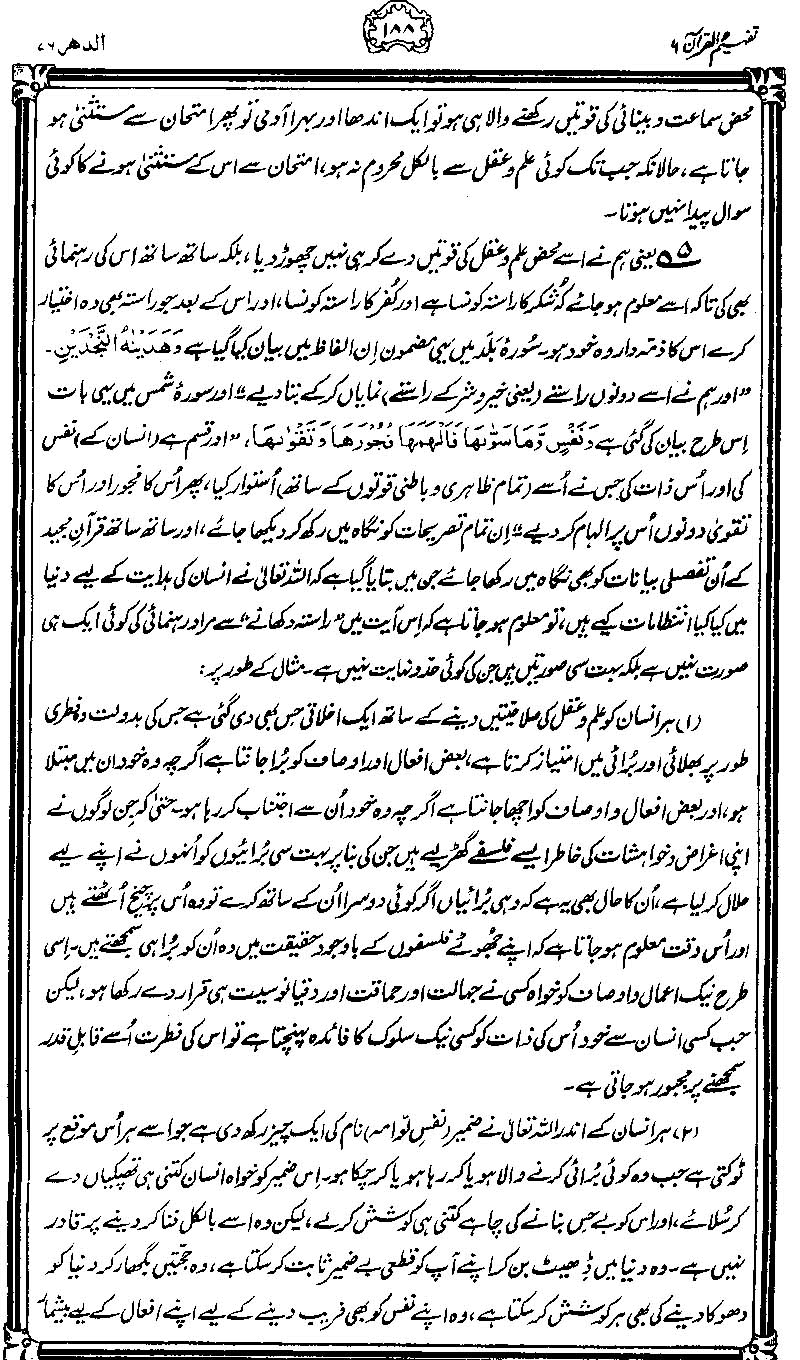 تفہیم القرآن ۶
۱۸۸
الدھر ۷۶
محض سماعت و بینائی کی قوتیں رکھنے والا ہی ہو تو ایک اندھا اور بہرا آدمی تو پھر امتحان سے مستثنیٰ ہو
جاتا ہے، حالانکہ جب تک کوئی علم و عقل سے بالکل محروم نہ ہو، امتحان سے اس کے مستثنیٰ ہونے کا کوئی
سوال پیدا نہیں ہوتا۔
۵ یعنی ہم نے اسے محض علم و عقل کی قوتیں دے کر ہی نہیں چھوڑ دیا، بلکہ ساتھ ساتھ اس کی رہنمائی
بھی کی تاکہ اسے معلوم ہو جائے کہ شکر کا راستہ کونسا ہے اور کفر کا راستہ کونسا، اور اس کے بعد جو راستہ بھی وہ اختیار
کرے اس کا ذمہ دار وہ خود ہو۔ سُورۂ بَلَد میں یہی مضمون اِن الفاظ میں بیان کیا گیا ہے وَهَدَيْنٰهُ النَّجْدَيْنِ۔
”اور ہم نے اسے دونوں راستے (یعنی خیر و شر کے راستے) نمایاں کر کے بتا دیے“ اور سورۂ شمس میں یہی بات
اِس طرح بیان کی گئی ہے وَنَفْسٍ وَّمَا سَوّٰىهَا فَاَلْهَمَهَا فُجُوْرَهَا وَتَقْوٰىهَا، ”اور قسم ہے (انسان کے) نفس
کی اور اُس ذات کی جس نے اُسے (تمام ظاہری و باطنی قوتوں کے ساتھ) اُستوار کیا، پھر اُس کا فجور اور اُس کا
تقویٰ دونوں اُس پر الہام کر دیے“ اِن تمام تصریحات کو نگاہ میں رکھ کر دیکھا جائے، اور ساتھ ساتھ قرآنِ مجید
کے اُن تفصیلی بیانات کو بھی نگاہ میں رکھا جائے جن میں بتایا گیا ہے کہ اللہ تعالیٰ نے انسان کی ہدایت کے لیے دنیا
میں کیا کیا انتظامات کیے ہیں، تو معلوم ہو جاتا ہے کہ اِس آیت میں ”راستہ دکھانے“ سے مراد رہنمائی کی کوئی ایک ہی
صورت نہیں ہے بلکہ بہت سی صورتیں ہیں جن کی کوئی حد و نہایت نہیں ہے۔ مثال کے طور پر:
(۱) ہر انسان کو علم و عقل کی صلاحیتیں دینے کے ساتھ ایک اخلاقی حس بھی دی گئی ہے جس کی بدولت وہ فطری
طور پر بھلائی اور بُرائی میں امتیاز کرتا ہے، بعض افعال اور اوصاف کو بُرا جانتا ہے اگرچہ وہ خود ان میں مبتلا
ہو، اور بعض افعال و اوصاف کو اچھا جانتا ہے اگرچہ وہ خود اُن سے اجتناب کر رہا ہو۔ حتیٰ کہ جن لوگوں نے
اپنی اغراض و خواہشات کی خاطر ایسے فلسفے گھڑ لیے ہیں جن کی بنا پر بہت سی بُرائیوں کو اُنہوں نے اپنے لیے
حلال کر لیا ہے، اُن کا حال بھی یہ ہے کہ وہی بُرائیاں اگر کوئی دوسرا اُن کے ساتھ کرے تو وہ اُس پر چیخ اُٹھتے ہیں
اور اُس وقت معلوم ہو جاتا ہے کہ اپنے جُھوٹے فلسفوں کے باوجود حقیقت میں وہ اُن کو بُرا ہی سمجھتے ہیں۔ اِسی
طرح نیک اعمال و اوصاف کو خواہ کسی نے جہالت اور حماقت اور دقیانوسیت ہی قرار دے رکھا ہو، لیکن
جب کسی انسان سے خود اُس کی ذات کو کسی نیک سلوک کا فائدہ پہنچتا ہے تو اس کی فطرت اُسے قابلِ قدر
سمجھنے پر مجبور ہو جاتی ہے۔
(۲) ہر انسان کے اندر اللہ تعالیٰ نے ضمیر (نفسِ لوّامہ) نام کی ایک چیز رکھ دی ہے جو اسے ہر اُس موقع پر
ٹوکتی ہے جب وہ کوئی بُرائی کرنے والا ہو یا کر رہا ہو یا کر چکا ہو۔ اِس ضمیر کو خواہ انسان کتنی ہی تھپکیاں دے
کر سُلائے، اور اس کو بے حس بنانے کی چاہے کتنی ہی کوشش کر لے، لیکن وہ اسے بالکل فنا کر دینے پر قادر
نہیں ہے۔ وہ دنیا میں ڈھیٹ بن کر اپنے آپ کو قطعی بے ضمیر ثابت کر سکتا ہے، وہ حجتیں بگھار کر دنیا کو
دھوکا دینے کی بھی ہر کوشش کر سکتا ہے، وہ اپنے نفس کو بھی فریب دینے کے لیے اپنے افعال کے لیے بیشمار